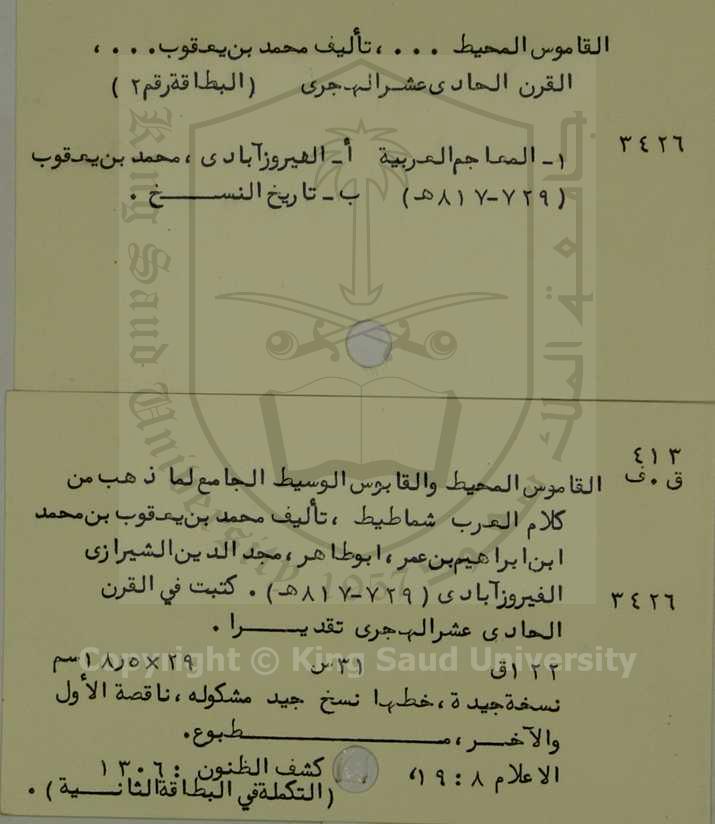 القاموس المحيط ...، تأليف محمد بن يعقوب...،
القرن الحادى عشر الهجرى (البطاقة رقم ٢)
٣٤٢٦
١- المعاجم العربية أ- الفيروزآبادى، محمد بن يعقوب
(٧٢٩-٨١٧هـ) ب- تاريخ النسخ.
٤١٣
ق.ف
القاموس المحيط والقابوس الوسيط الجامع لما ذهب من
كلام العرب شماطيط، تأليف محمد بن يعقوب بن محمد
ابن ابراهيم بن عمر، ابوطاهر، مجد الدين الشيرازى
٣٤٢٦
الفيروزآبادى (٧٢٩-٨١٧هـ). كتبت في القرن
الحادى عشر الهجرى تقديرا.
١٢٢ق ٣١س ٢٩×١٨٫٥سم
نسخة جيدة، خطها نسخ جيد مشكوله، ناقصة الأول
والآخر، مطبوع.
الاعلام ٨: ١٩، كشف الظنون: ١٣٠٦
(التكملة في البطاقة الثانية).
King Saud University
جامعة الملك سعود
1957
Copyright © King Saud University